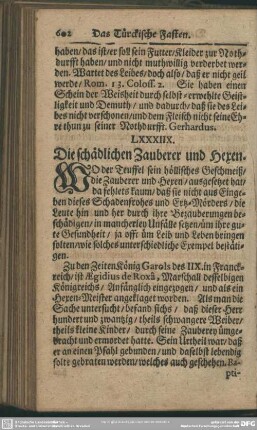 602 Das Türckische Fasten.
haben/das ist/er soll sein Futter/Kleider zur Noth-
durfft haben/und nicht muthwillig verderbet wer-
den. Wartet des Leibes/doch also/daß er nicht geil
werde/Rom. 13. Coloss. 2. Sie haben einen
Schein der Weisheit durch selbst-erwehlte Geist-
ligkeit und Demuth/und dadurch/daß sie des Lei-
bes nicht verschonen/und dem Fleisch nicht seine Eh-
re thun zu seiner Nothdurfft. Gerhardus.
LXXXIIX.
Die schädlichen Zauberer und Hexen.
WO der Teuffel sein höllisches Geschmeiß/
die Zauberer und Hexen/ausgesetzet hat/
da fehlets kaum/daß sie nicht aus Einge-
ben dieses Schadenfrohes und Ertz-Mörders/die
Leute hin und her durch ihre Bezauberungen be-
schädigen/in mancherley Unfälle setzen/um ihre gu-
te Gesundheit/ja offt üm Leib und Leben bringen
solten/wie solches unterschiedliche Exempel bestäti-
gen.
Zu den Zeiten König Carols des IIX. in Franck-
reich/ist Ægidius de Roxâ, Marschall desselbigen
Königreichs/Anfänglich eingezogen/und als ein
Hexen-Meister angeklaget worden. Als man die
Sache untersucht/befand sichs/daß dieser Herr
hundert und zwantzig/theils schwangere Weiber/
theils kleine Kinder/durch seine Zauberey ümge-
bracht und ermordet hatte. Sein Urtheil war/daß
er an einen Pfahl gebunden/und daselbst lebendig
solte gebraten werden/welches auch geschehen. Ba-
pti-